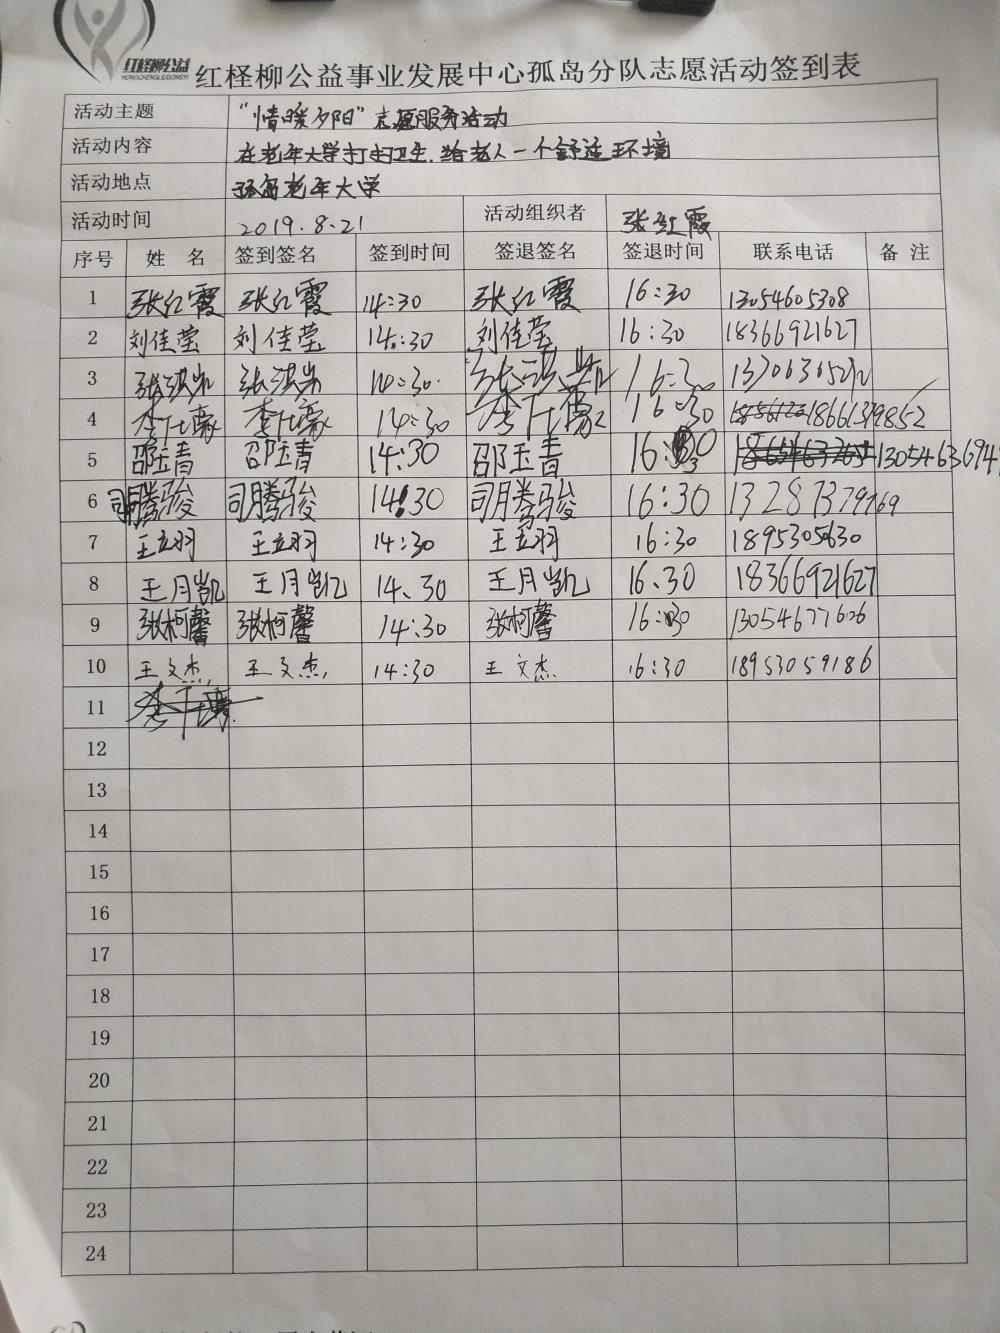 红柽柳公益
HONGCHENGLIUGONGYI
红柽柳公益事业发展中心孤岛分队志愿活动签到表
活动主题 “情暖夕阳”志愿服务活动
活动内容 在老年大学打扫卫生,给老人一个舒适环境
活动地点 孤岛老年大学
活动时间 2019.8.21 活动组织者 张红霞
序号 姓 名 签到签名 签到时间 签退签名 签退时间 联系电话 备 注
1 张红霞 张红霞 14:30 张红霞 16:30 13054605308
2 刘佳莹 刘佳莹 14:30 刘佳莹 16:30 18366921627
3 14:30 16:30
4 14:30 16:30 18661379852
5 邵玉青 邵玉青 14:30 邵玉青 16:30
6 司腾骏 司腾骏 14:30 司腾骏 16:30 13287379769
7 王立羽 王立羽 14:30 王立羽 16:30 18953050630
8 王月凯 王月凯 14.30 王月凯 16.30 18366921627
9 张柯馨 张柯馨 14:30 张柯馨 16:30 13054677606
10 王文杰 王文杰 14:30 王文杰 16:30 18953059186
11
12
13
14
15
16
17
18
19
20
21
22
23
24